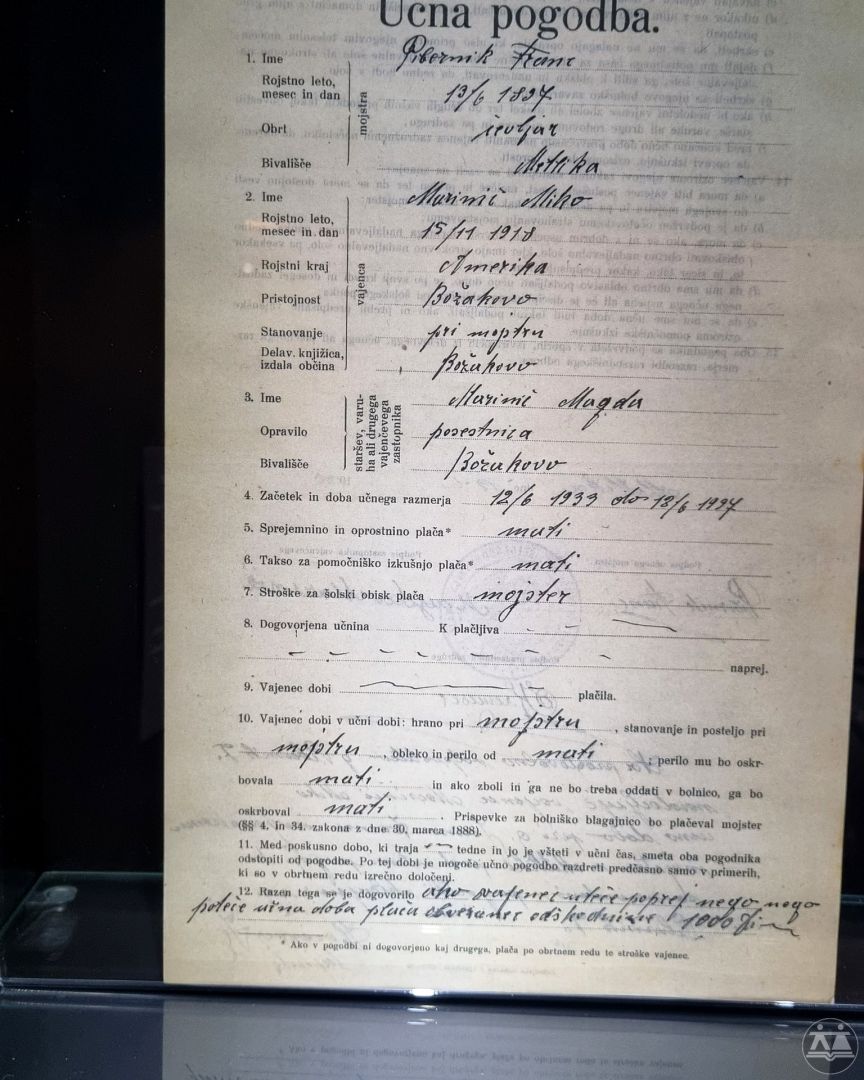 Učna pogodba.
1. Ime Pibernik Franc
Rojstno leto,
mesec in dan 13/6 1897
mojstra
Obrt čevljar
Bivališče Metlika
2. Ime Marinič Miko
Rojstno leto,
mesec in dan 15/11 1918
Rojstni kraj Amerika
vajenca
Pristojnost Božakovo
Stanovanje pri mojstru
Delav. knjižica,
izdala občina Božakovo
3. Ime Marinič Magda
staršev, varu-
ha ali drugega
vajenčevega
zastopnika
Opravilo posestnica
Bivališče Božakovo
4. Začetek in doba učnega razmerja 12/6 1933 do 12/6
5. Sprejemnino in oprostnino plača* mati
6. Takso za pomočniško izkušnjo plača* mati
7. Stroške za šolski obisk plača mojster
8. Dogovorjena učnina K plačljiva
naprej.
9. Vajenec dobi plačila.
10. Vajenec dobi v učni dobi: hrano pri mojstru, stanovanje in posteljo pri
mojstru, obleko in perilo od mati; perilo mu bo oskr-
bovala mati in ako zboli in ga ne bo treba oddati v bolnico, ga bo
oskrboval mati. Prispevke za bolniško blagajnico bo plačeval mojster
(§§ 4. in 34. zakona z dne 30. marca 1888).
11. Med poskusno dobo, ki traja tedne in jo je všteti v učni čas, smeta oba pogodnika
odstopiti od pogodbe. Po tej dobi je mogoče učno pogodbo razdreti predčasno samo v primerih,
ki so v obrtnem redu izrečno določeni.
12. Razen tega se je dogovorilo ako vajenec uteče poprej nego
poteče učna doba plača odškodnine 1000 Din
* Ako v pogodbi ni dogovorjeno kaj drugega, plača po obrtnem redu te stroške vajenec.